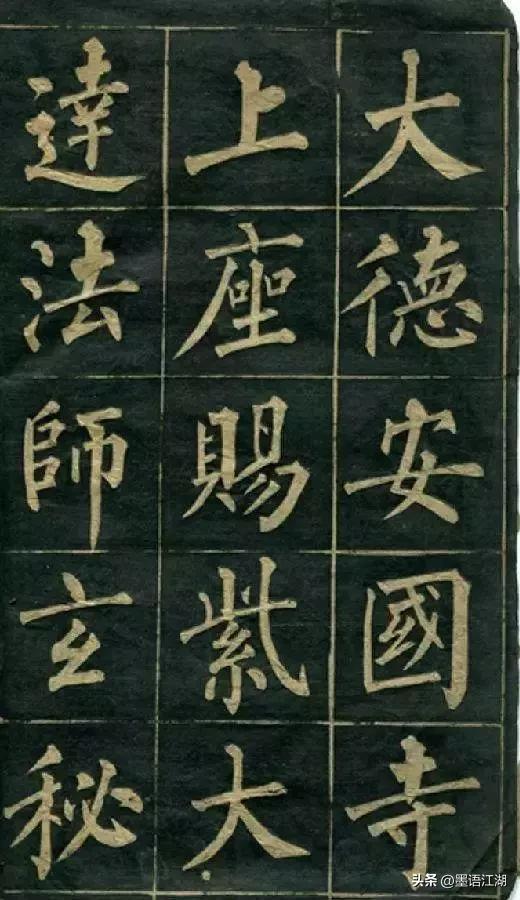 大德安國寺
上座賜紫大
達法師玄秘
头条 @墨语江湖